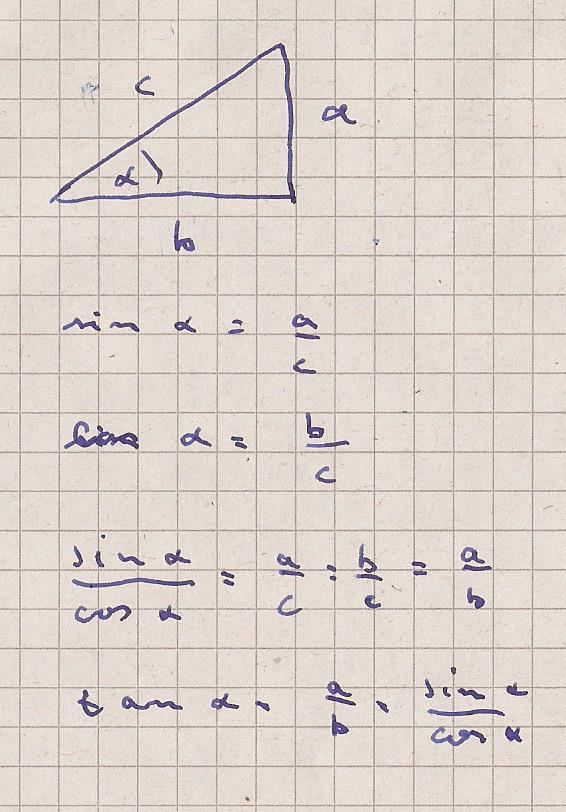 c
a
α
b
sin α = a/c
cos α = b/c
sin α/cos α = a/c : b/c = a/b
tan α = a/b = sin α/cos α